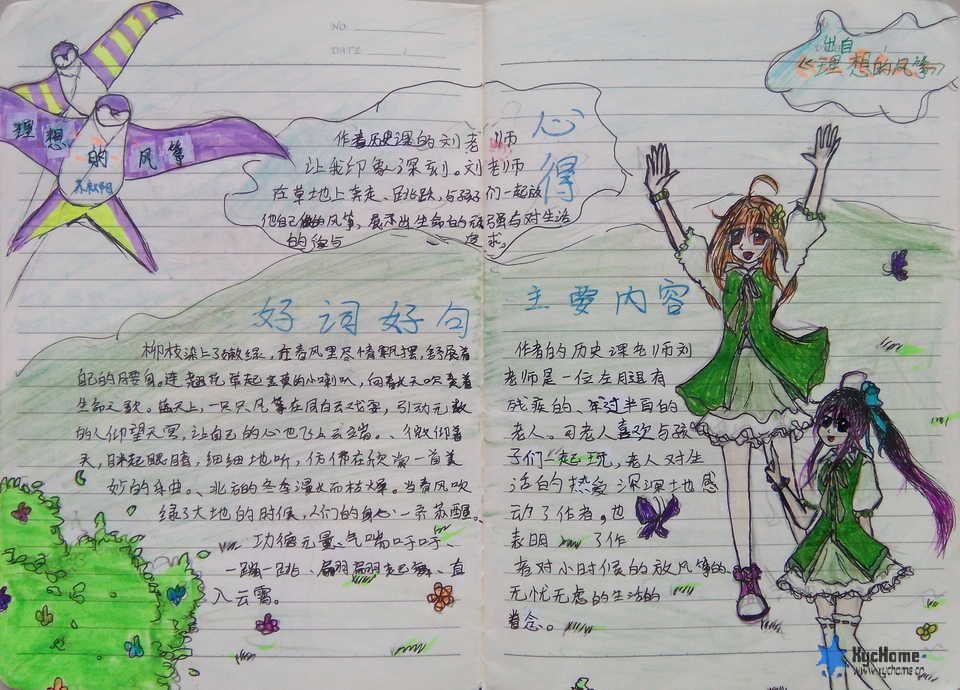 NO.
DATE
出自
《理想的风筝》
理想的风筝
苏叔阳
心得
作者历史课的刘老师
让我印象深刻。刘老师
在草地上奔走、跳跃,与孩子们一起放
他自己做的风筝,展示出生命的顽强与对生活
的
求。
好词好句
柳枝染上了嫩绿,在春风里尽情飘摆,舒展着
自己的腰身。连翘花举起金黄的小喇叭,向着长天吹奏着
生命之歌。蓝天上,一只只风筝在同白云戏耍,引动无数
的人仰望天穹,让自己的心也飞上云端。、微仰着
头,眯起眼睛,细细地听,仿佛在欣赏一首美
妙的乐曲。、北方的冬季漫长而枯燥。当春风吹
绿了大地的时候,人们的身心一齐苏醒。、
功德无量、气喘吁吁、
一蹦一跳、翩翩起舞、直
入云霄。
主要内容
作者的历史课老师刘
老师是一位左腿有
残疾的、年过半百的
老人。可老人喜欢与孩
子们一起玩,老人对生
活的热爱深深地感
动了作者。也
表明了作
者对小时候的放风筝的
无忧无虑的生活的
眷念。
XycHome
www.xychome.cn